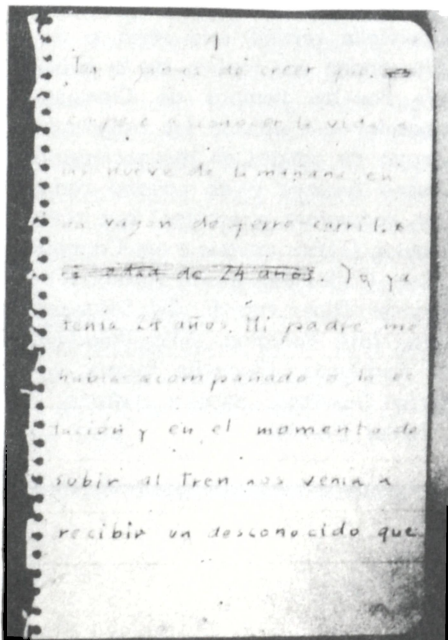 1
ganas de creer que
empecé a conocer la vida a
las nueve de la mañana en
un vagón de ferrocarril a
la edad de 24 años. Yo ya
tenía 24 años. Mi padre me
había acompañado a la es
tación y en el momento de
subir al tren nos venía a
recibir un desconocido que